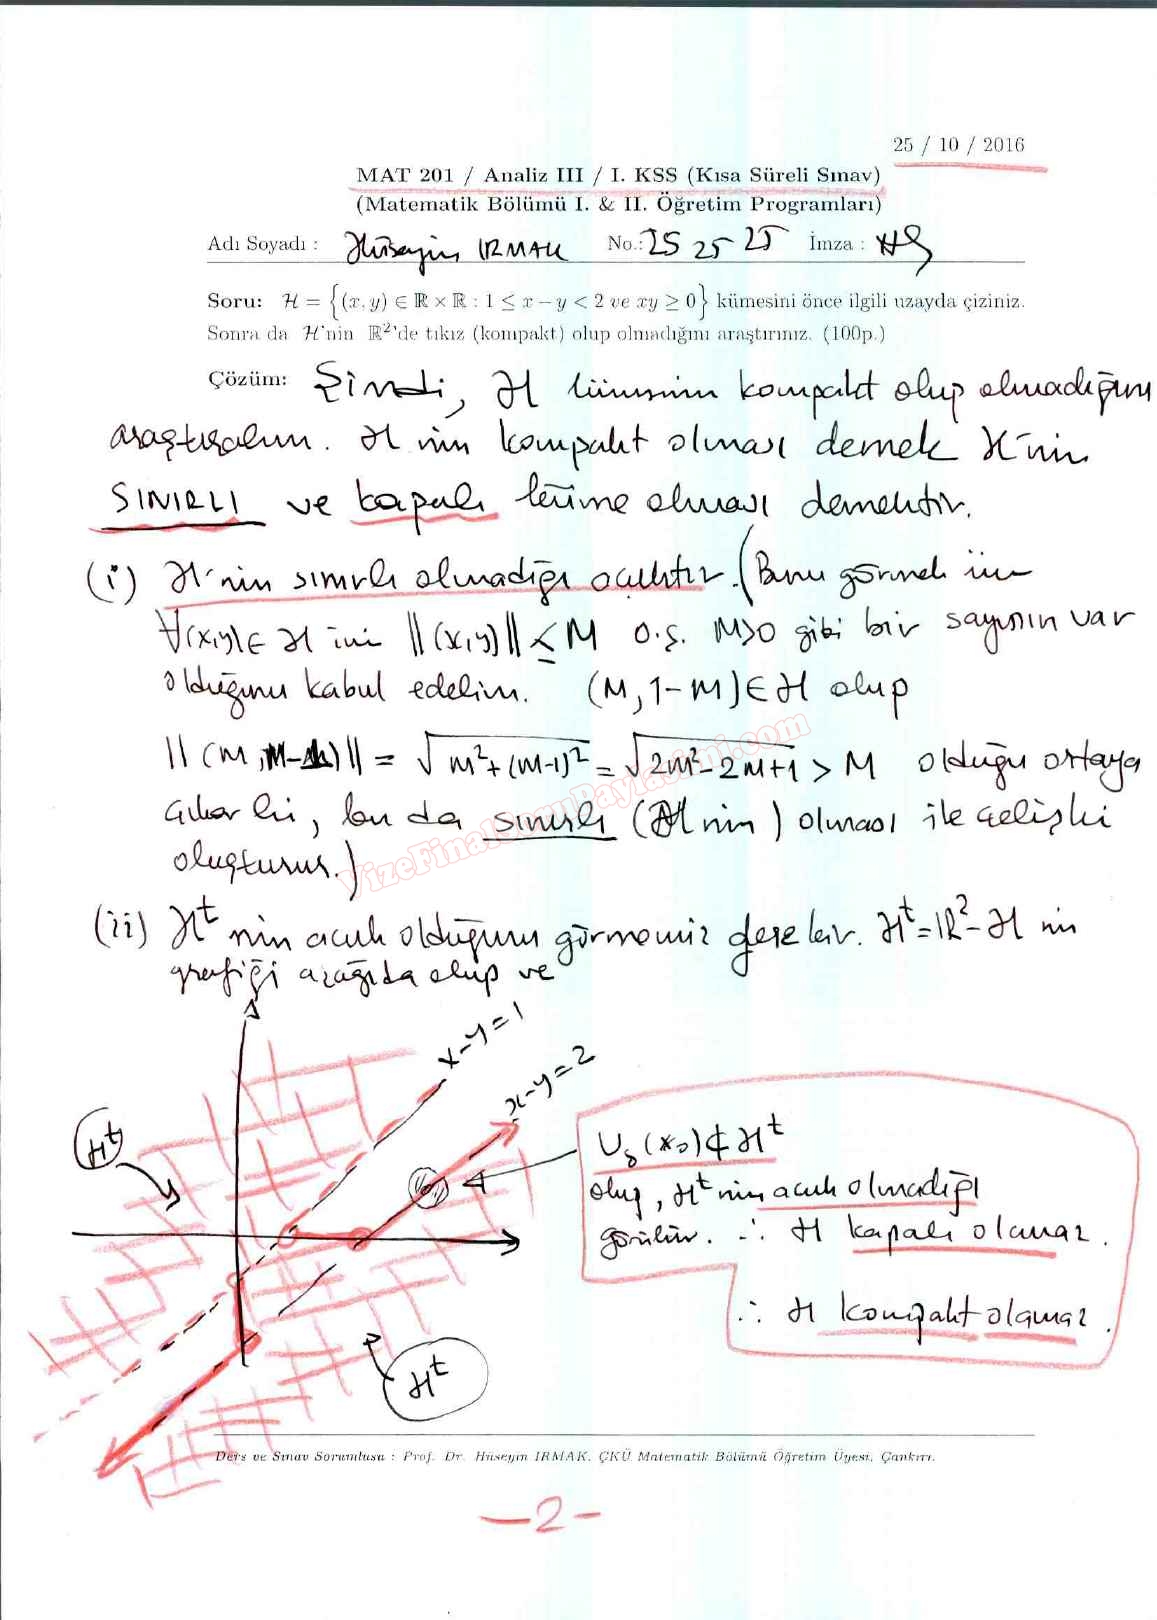 25 / 10 / 2016
MAT 201 / Analiz III / I. KSS (Kısa Süreli Sınav)
(Matematik Bölümü I. & II. Öğretim Programları)
Adı Soyadı : Hüseyin IRMAK No.: 25 25 25 İmza :
Soru: H = {(x, y) ∈ ℝ × ℝ : 1 ≤ x − y < 2 ve xy ≥ 0} kümesini önce ilgili uzayda çiziniz.
Sonra da H'nin ℝ²'de tıkız (kompakt) olup olmadığını araştırınız. (100p.)
Çözüm: Şimdi, H kümesinin kompakt olup olmadığını
araştıralım. H nin kompakt olması demek H'nin
SINIRLI ve kapalı küme olması demektir.
(i) H'nin sınırlı olmadığı açıktır. (Bunu görmek için
∀(x,y) ∈ H için ||(x,y)|| ≤ M o.ş. M>0 gibi bir sayının var
olduğunu kabul edelim. (M, 1-M) ∈ H olup
||(M, )|| = √(M²+(M-1)²) = √(2M²-2M+1) > M olduğu ortaya
çıkar ki, bu da sınırlı (H nin) olması ile çelişki
oluşturur.)
(ii) Hᵗ nin açık olduğunu görmemiz gerekir. Hᵗ = ℝ² - H nin
grafiği aşağıda olup ve
x-y=1
x-y=2
Hᵗ
U_δ(x₀) ⊄ Hᵗ
olup, Hᵗ nin açık olmadığı
görülür. ∴ H kapalı olamaz.
∴ H kompakt olamaz.
Hᵗ
Ders ve Sınav Sorumlusu : Prof. Dr. Hüseyin IRMAK, ÇKÜ Matematik Bölümü Öğretim Üyesi, Çankırı.
-2-
VizeFinalSoruPaylasimi.com